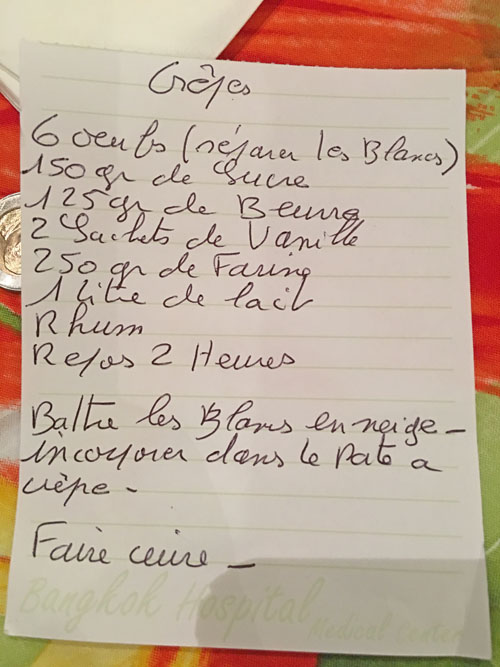 Crêpes
6 oeufs (séparer les Blancs)
150 gr de Sucre
125 gr de Beurre
2 Sachets de Vanille
250 gr de Farine
1 litre de lait
Rhum
Repos 2 Heures
Battre les Blancs en neige -
incorporer dans le Pate a
crèpe -
Faire cuire -
Bangkok Hospital
Medical Center